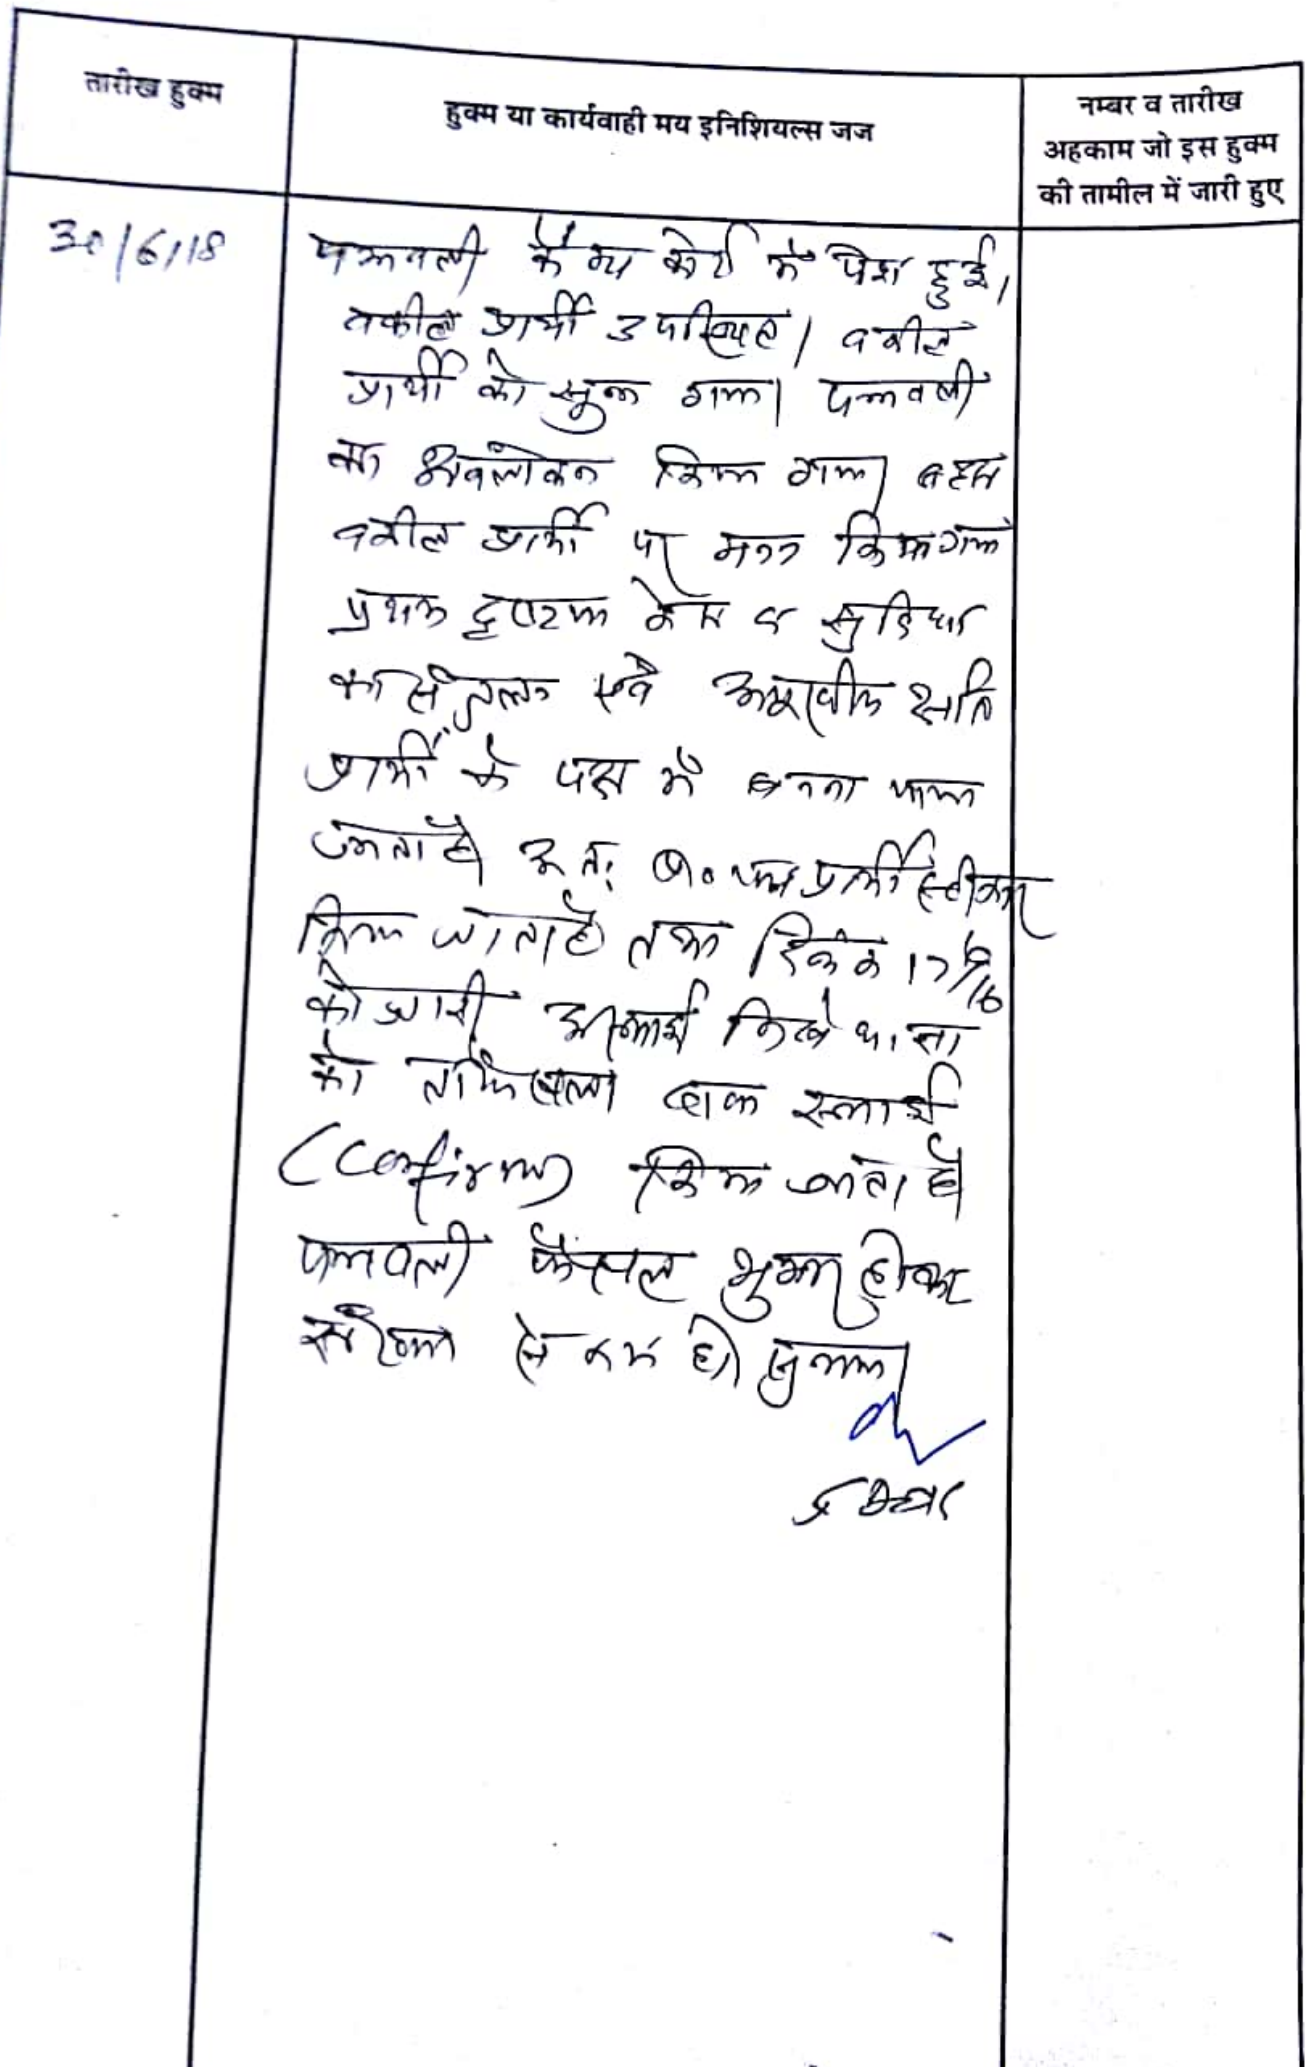 तारीख हुक्म
हुक्म या कार्यवाही मय इनिशियल्स जज
नम्बर व तारीख
अहकाम जो इस हुक्म
की तामील में जारी हुए
30/6/18
पत्रावली कैम्प कोर्ट में पेश हुई।
वकील प्रार्थी उपस्थित। वकील
प्रार्थी को सुना गया। पत्रावली
का अवलोकन किया गया। बहस
वकील प्रार्थी पर मनन किया गया
प्रथम दृष्टया केस व सुविधा
का संतुलन एवं अपूरणीय क्षति
प्रार्थी के पक्ष में बनना पाया
जाता है। अतः प्रा० पत्र प्रार्थी स्वीकार
किया जाता है तथा दिनांक
को जारी अस्थाई निषेधाज्ञा
को ताफैसला स्थाई
(Confirm) किया जाता है
पत्रावली फैसल शुमार होकर
से कम हो